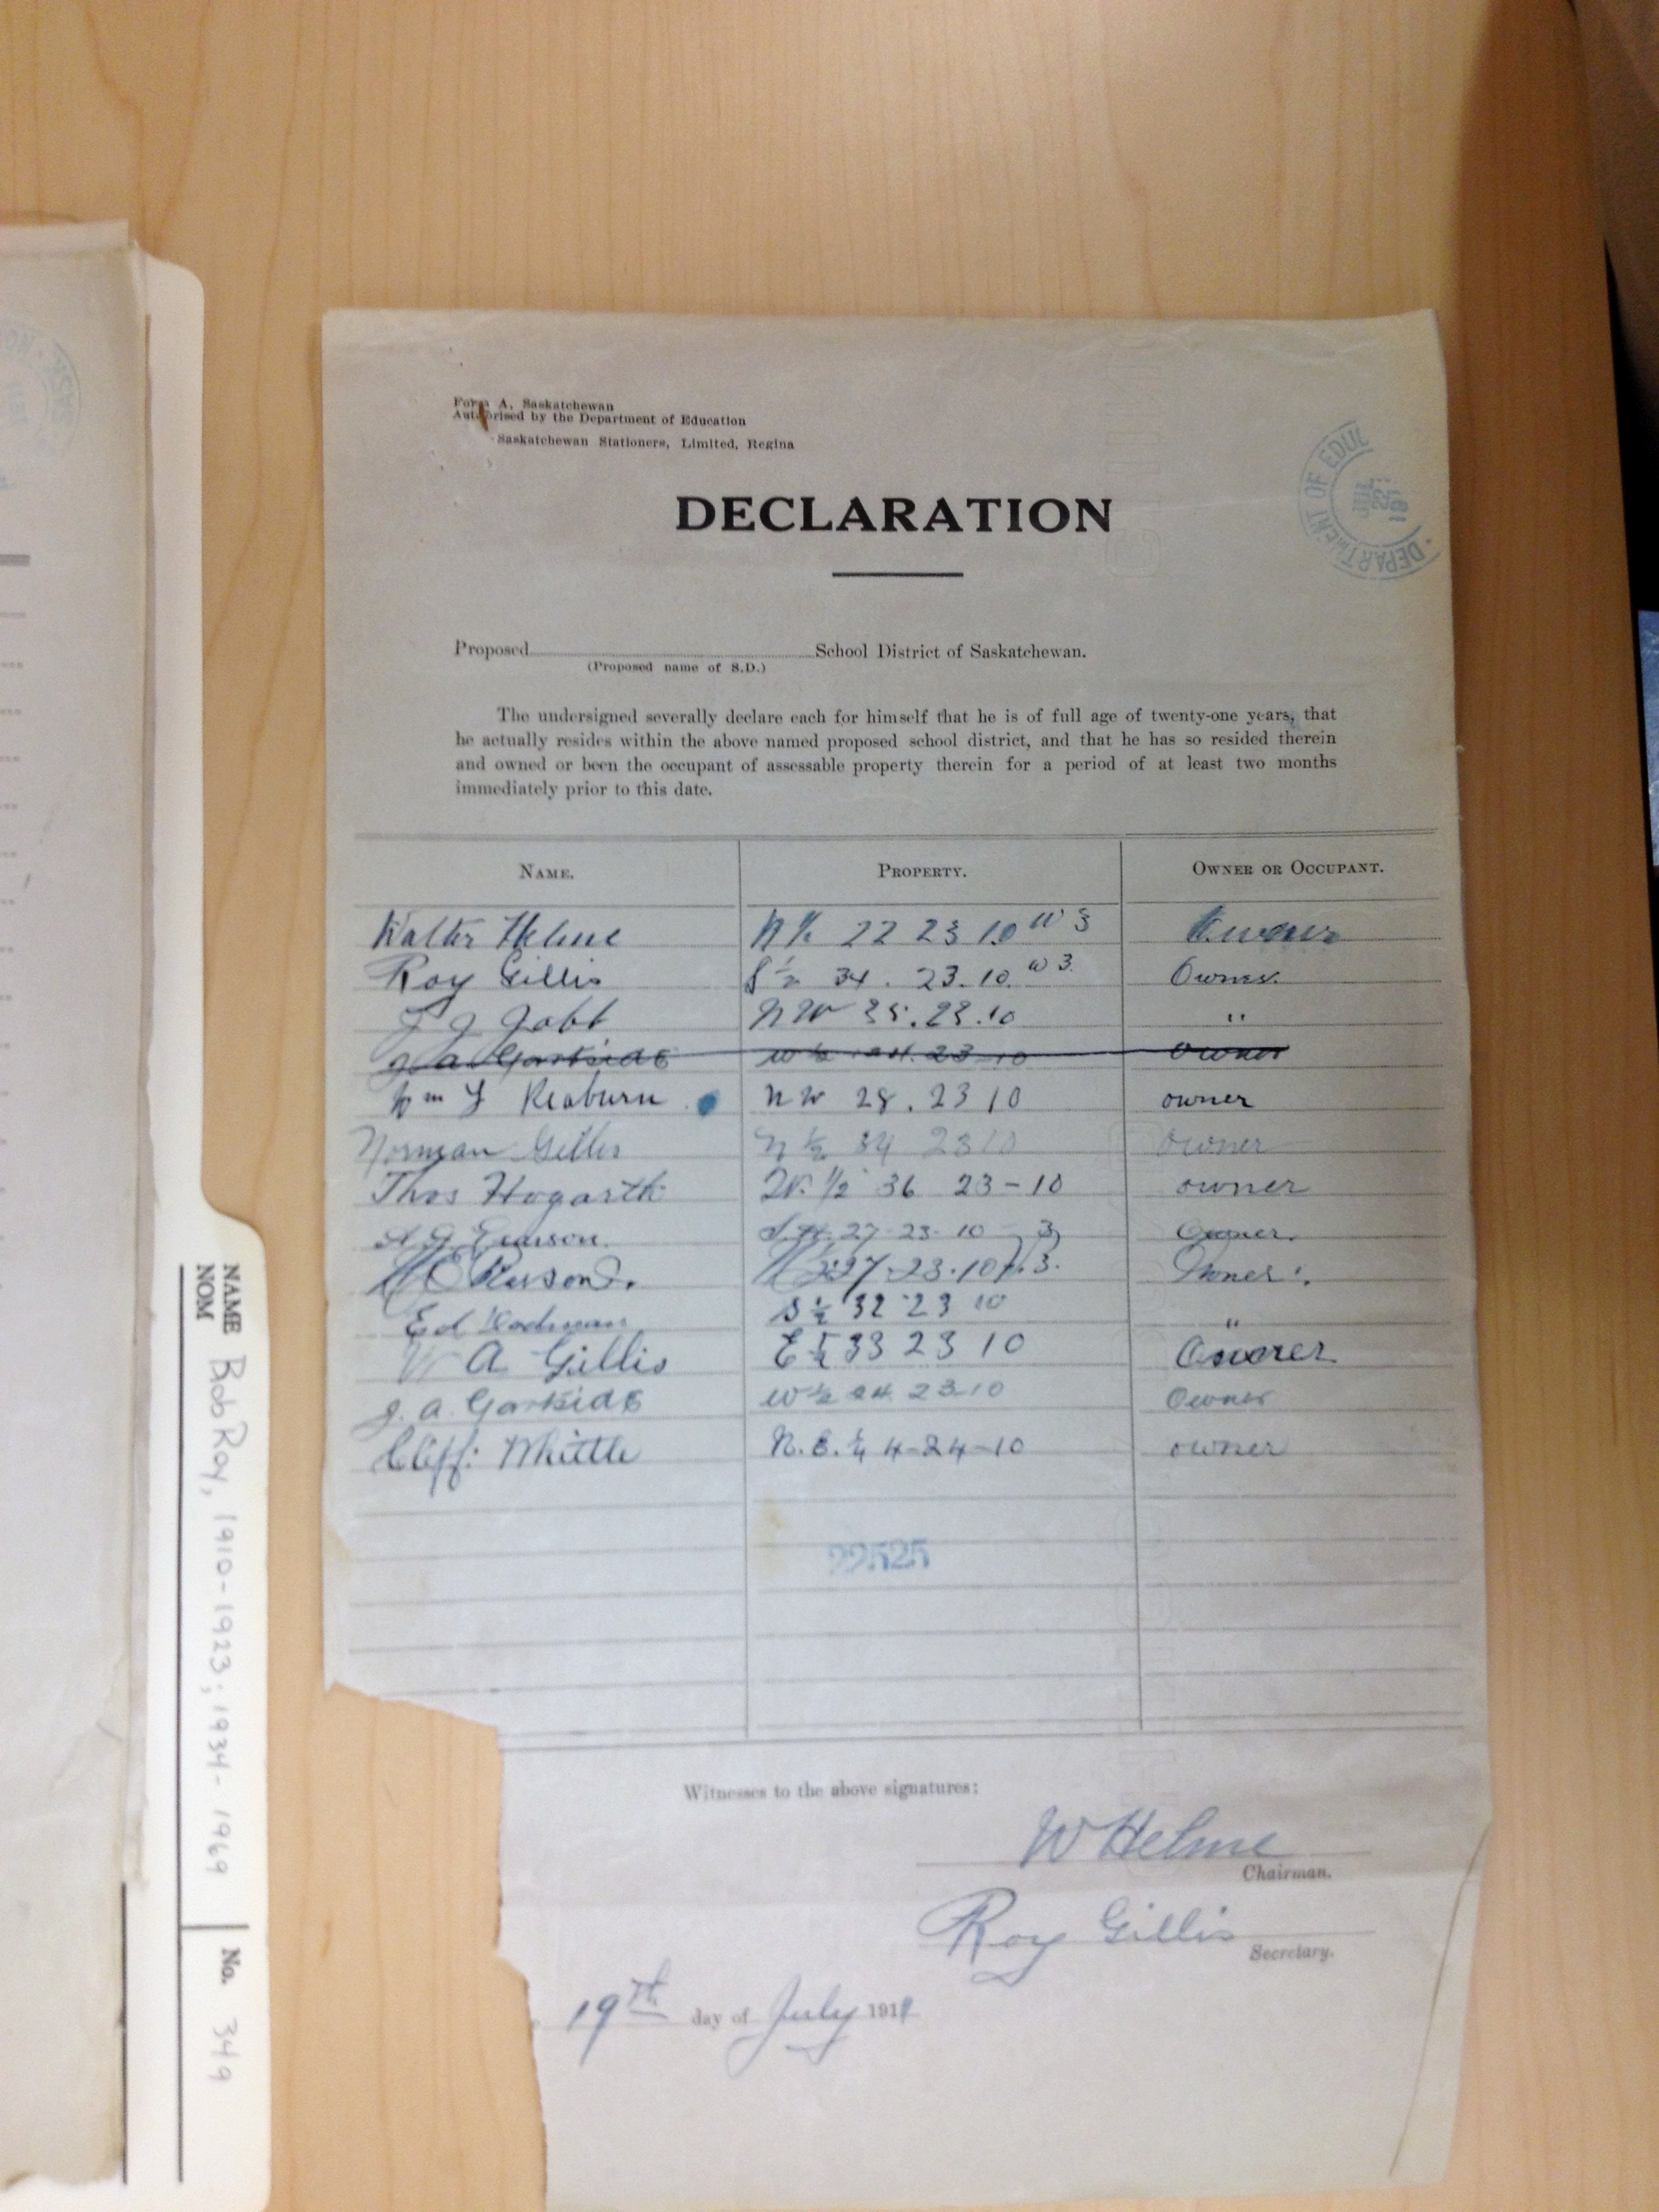 Form A, Saskatchewan
Authorised by the Department of Education
Saskatchewan Stationers, Limited, Regina
DEPARTMENT OF EDUC
DECLARATION
Proposed School District of Saskatchewan.
(Proposed name of S.D.)
The undersigned severally declare each for himself that he is of full age of twenty-one years, that
he actually resides within the above named proposed school district, and that he has so resided therein
and owned or been the occupant of assessable property therein for a period of at least two months
immediately prior to this date.
NAME. PROPERTY. OWNER OR OCCUPANT.
Walter Helme N ½ 22 23 10 W 3 Owner
Roy Gillis S ½ 34 . 23. 10. W 3. Owner.
J J Jobb N W 35. 23. 10 "
J. A. Garkside W ½ 24. 23 - 10 Owner
Wm Y Reaburn NW 28. 23 10 owner
Norman Gillis N ½ 34 23 10 owner
Thos Hogarth W. 1/2 36 23 - 10 owner
27-23-10 3 Owner.
27-23-10 3. Owner.
Ed S ½ 32 23 10 "
A Gillis E ½ 33 23 10 Owner
J. A. Garkside W ½ 24 23-10 Owner
Cliff: Whittle N. E. ¼ 4-24-10 owner
22525
Witnesses to the above signatures:
W Helme
Chairman.
Roy Gillis
Secretary.
19th day of July 1911
NAME
NOM
Bob Roy, 1910-1923; 1934-1969
No. 349